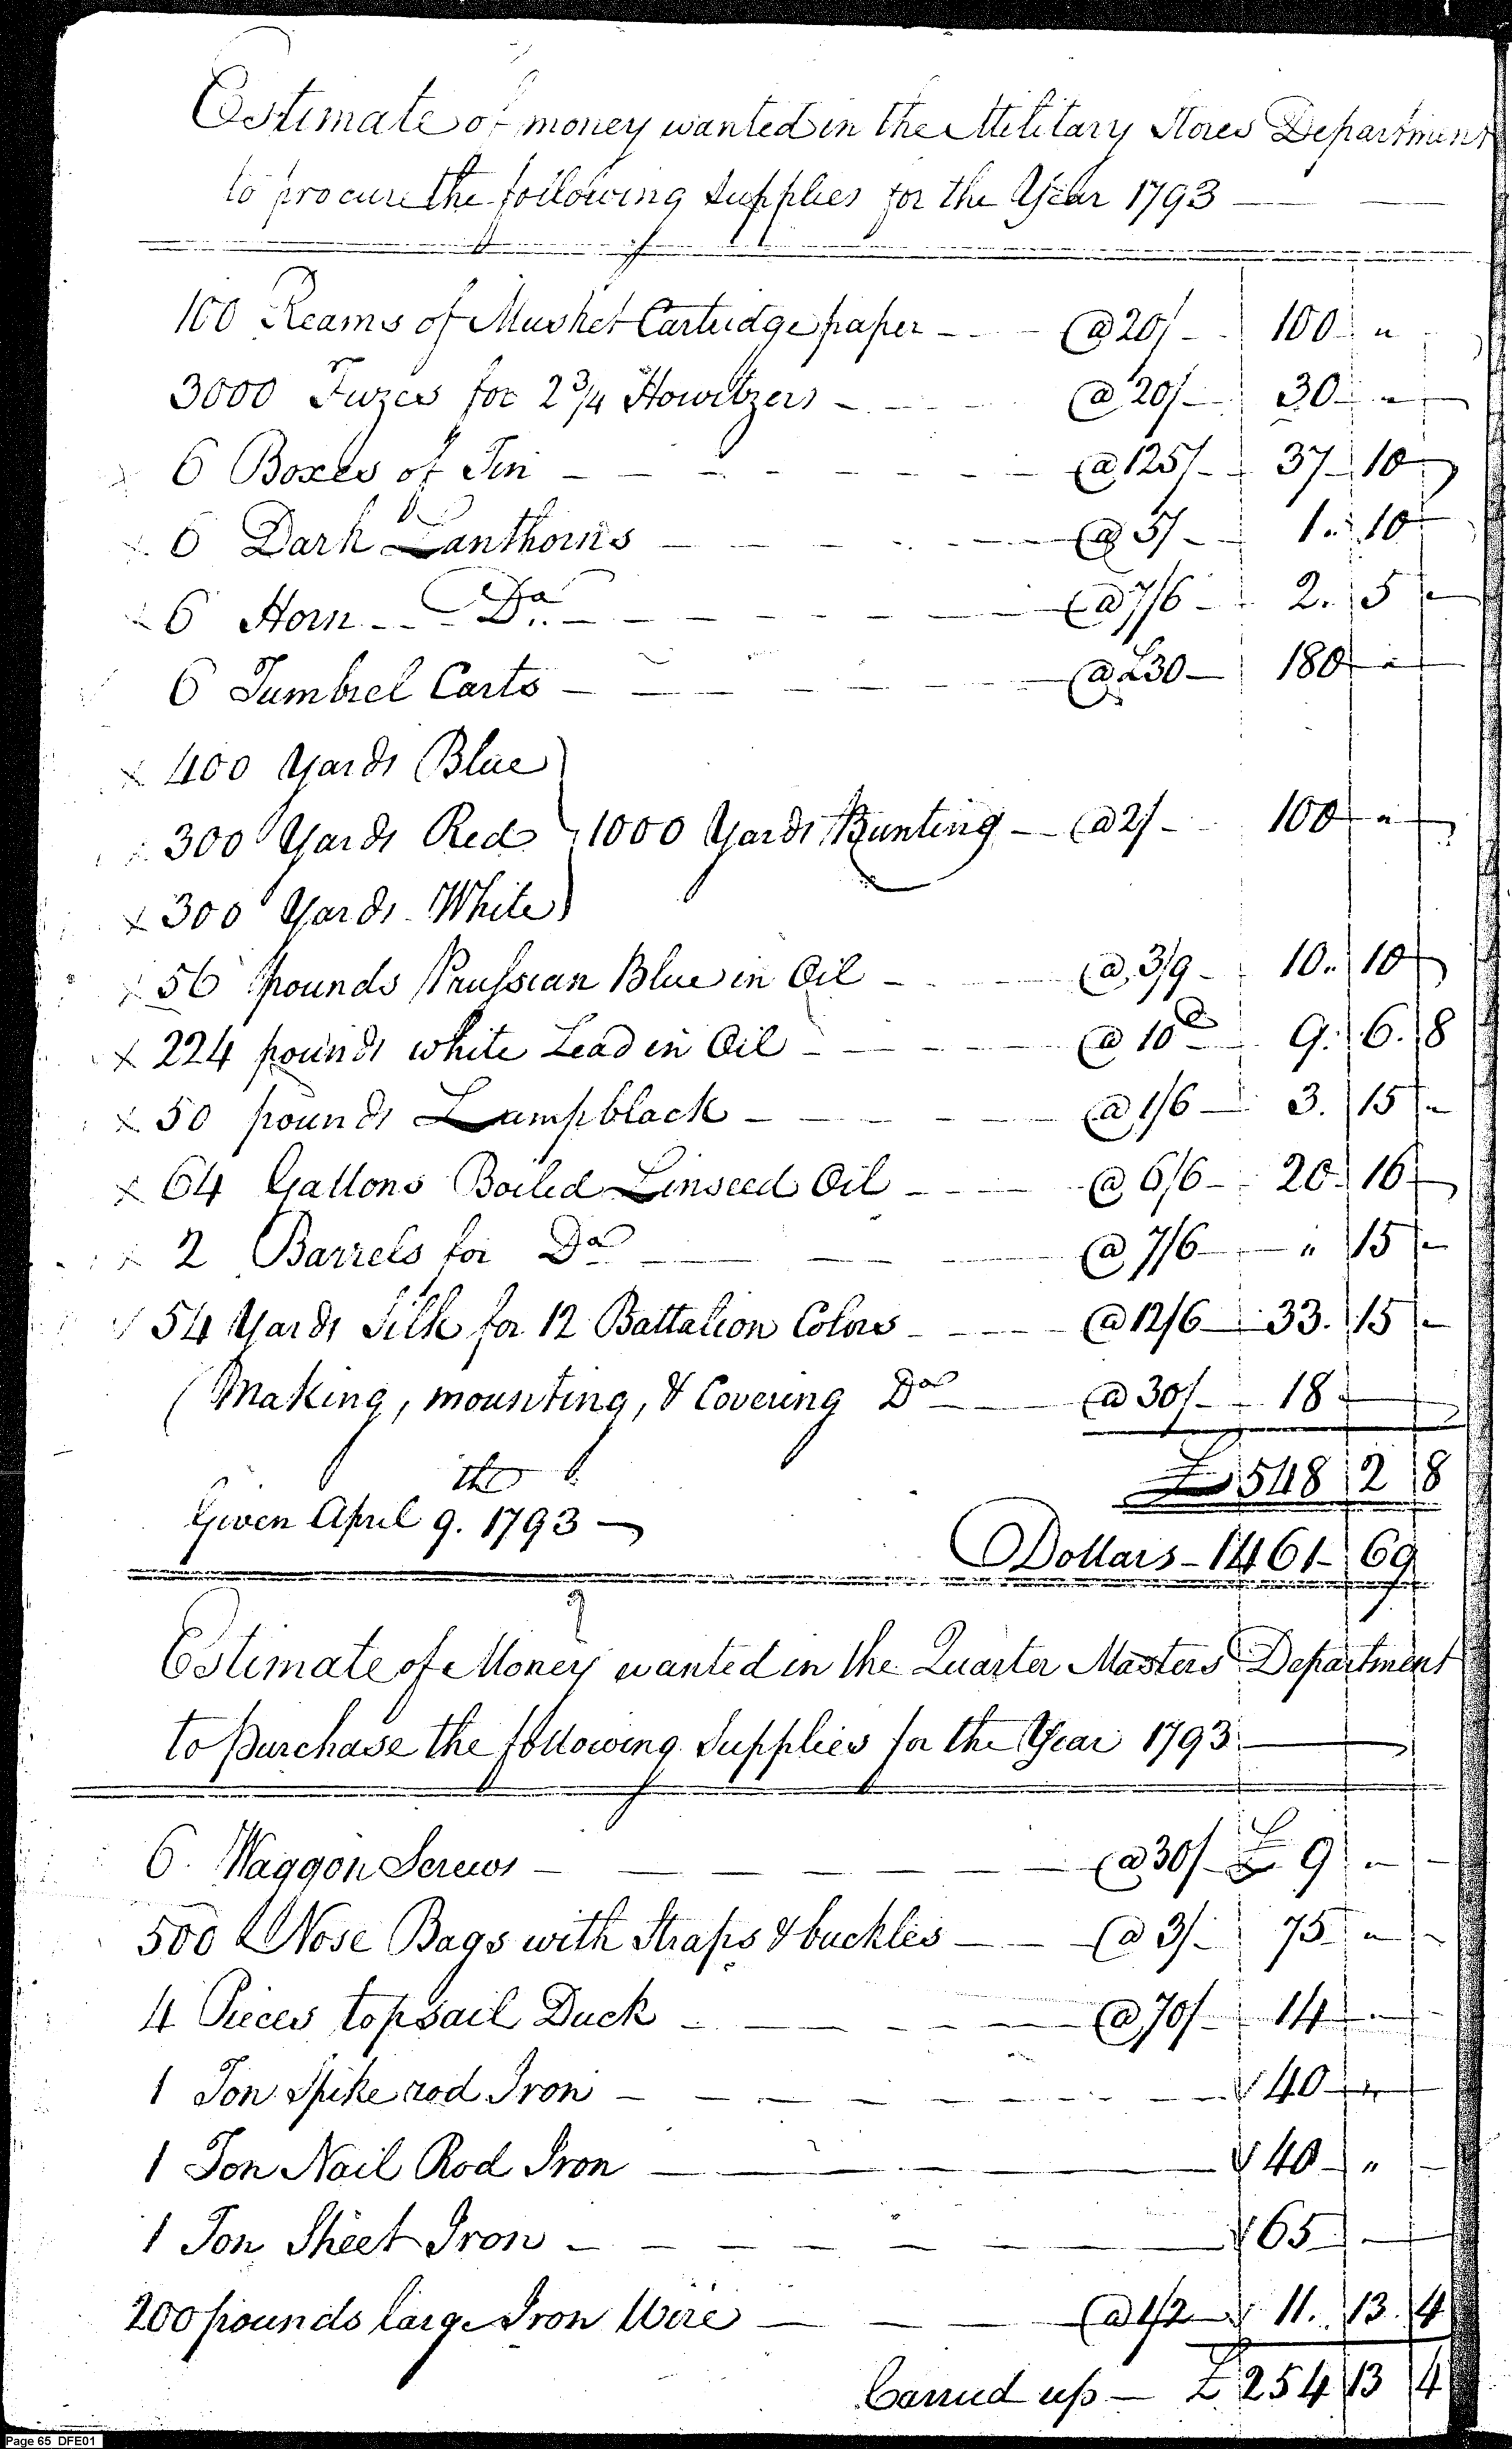 Estimate of money wanted in the Military Stores Department
to procure the following Supplies for the Year 1793
100 Reams of Musket Cartridge paper @ 20/ 100 "
3000 Fuzes for 2 3/4 Howitzers @ 20/ 30 "
6 Boxes of Tin @ 125/ 37 10
6 Dark Lanthorns @ 5/ 1. 10
6 Horn Do. @ 7/6 2. 5
6 Tumbrel Carts @ £30 180 "
x 400 Yards Blue
300 Yards Red } 1000 Yards Bunting @ 2/ 100 "
x 300 Yards White
x 56 pounds Prussian Blue in Oil @ 3/9 10. 10
x 224 pounds white Lead in Oil @ 10d 9. 6. 8
x 50 pounds Lampblack @ 1/6 3. 15
x 64 Gallons Boiled Linseed Oil @ 6/6 20 16
x 2 Barrels for Do @ 7/6 " 15
54 Yards Silk for 12 Battalion Colors @ 12/6 33. 15
Making, mounting, & Covering Do @ 30/ 18
£ 548 2 8
Given April 9.th 1793
Dollars 1461 69
Estimate of Money wanted in the Quarter Masters Department
to purchase the following Supplies for the Year 1793
6. Waggon Screws @ 30/ £ 9 "
500 Nose Bags with Straps & buckles @ 3/ 75 "
4 Pieces topsail Duck @ 70/ 14
1 Ton Spike rod Iron 40 "
1 Ton Nail Rod Iron 40 "
1 Ton Sheet Iron 65
200 pounds large Iron Wire @ 1/2 11. 13. 4
Carried up £ 254 13 4
Page 65 DFE01